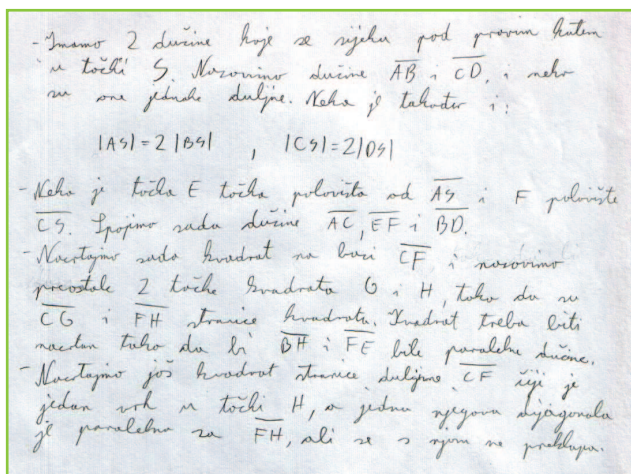 - Imamo 2 dužine koje se sijeku pod pravim kutem
u točki S. Nazovimo dužine AB i CD, i neka
su one jednake duljne. Neka je također i:
|AS| = 2 |BS| , |CS| = 2|DS|
- Neka je točka E točka polovišta od AS i F polovište
CS. Spojimo sada dužine AC, EF i BD.
- Nacrtajmo sada kvadrat na bazi CF i nazovimo
preostale 2 točke kvadrata G i H, tako da su
CG i FH stranice kvadrata. Kvadrat treba biti
nacrtan tako da bi BH i FE bile paralelne dužine.
- Nacrtajmo još kvadrat stranice duljine CF čiji je
jedan vrh u točki H, a jedna njegova dijagonala
je paralelna sa FH, ali se s njom ne preklapa.